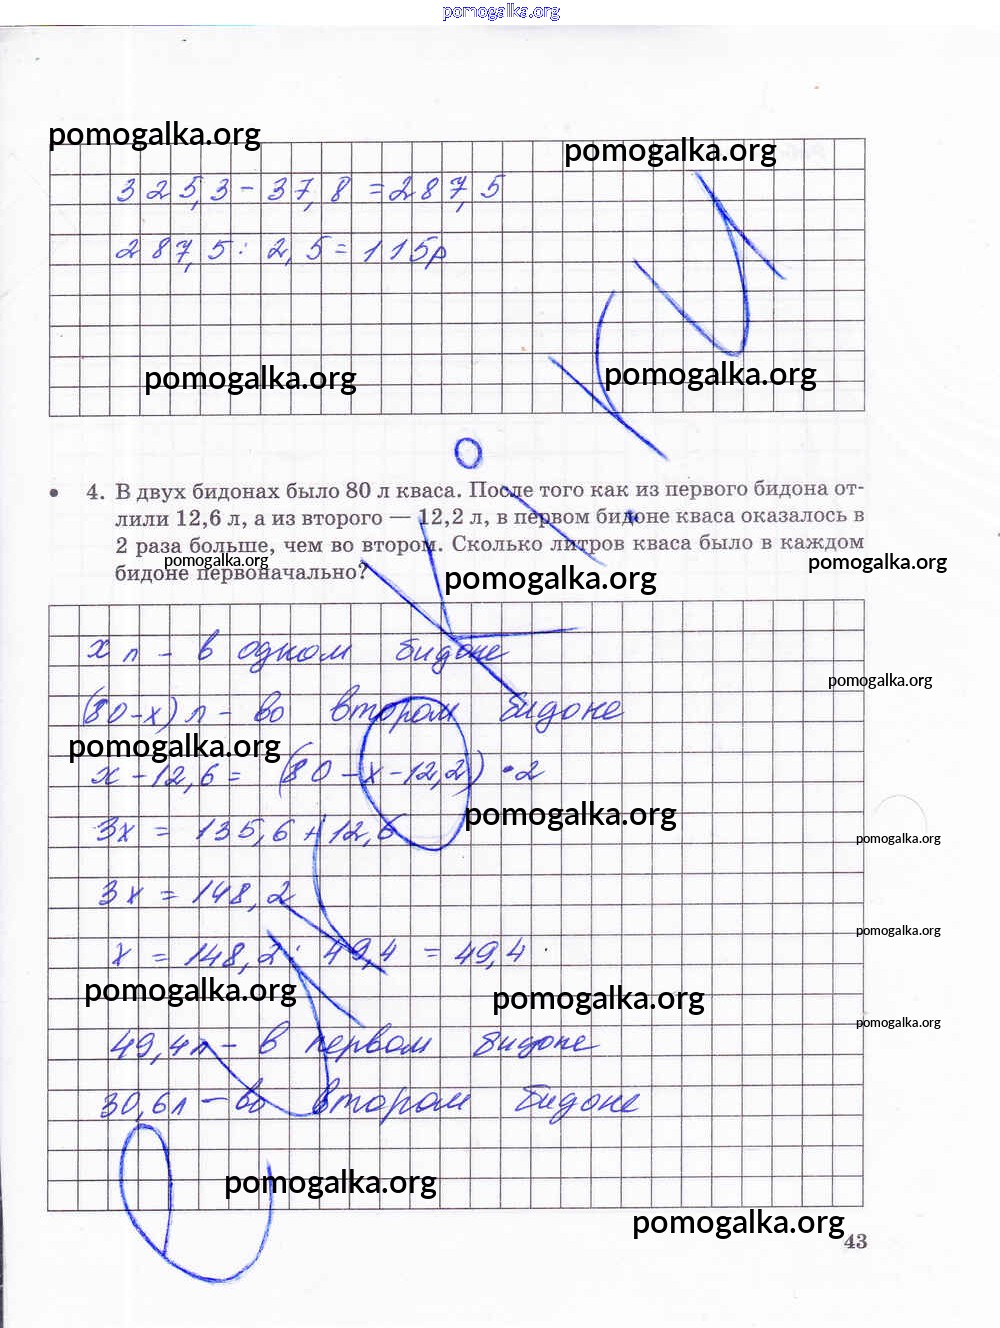 pomogalka.org
pomogalka.org
pomogalka.org
325,3 - 37,8 = 287,5
287,5 : 2,5 = 115р
pomogalka.org
pomogalka.org
• 4. В двух бидонах было 80 л кваса. После того как из первого бидона от-
лили 12,6 л, а из второго — 12,2 л, в первом бидоне кваса оказалось в
2 раза больше, чем во втором. Сколько литров кваса было в каждом
бидоне первоначально?
pomogalka.org
pomogalka.org
pomogalka.org
х л - в одном бидоне
pomogalka.org
(80-х) л - во втором бидоне
pomogalka.org
х - 12,6 = (80 - х - 12,2) • 2
pomogalka.org
3х = 135,6 + 12,6
pomogalka.org
3х = 148,2
pomogalka.org
х = 148,2 : 49,4 = 49,4
pomogalka.org
pomogalka.org
pomogalka.org
49,4л - в первом бидоне
30,6л - во втором бидоне
pomogalka.org
pomogalka.org
43